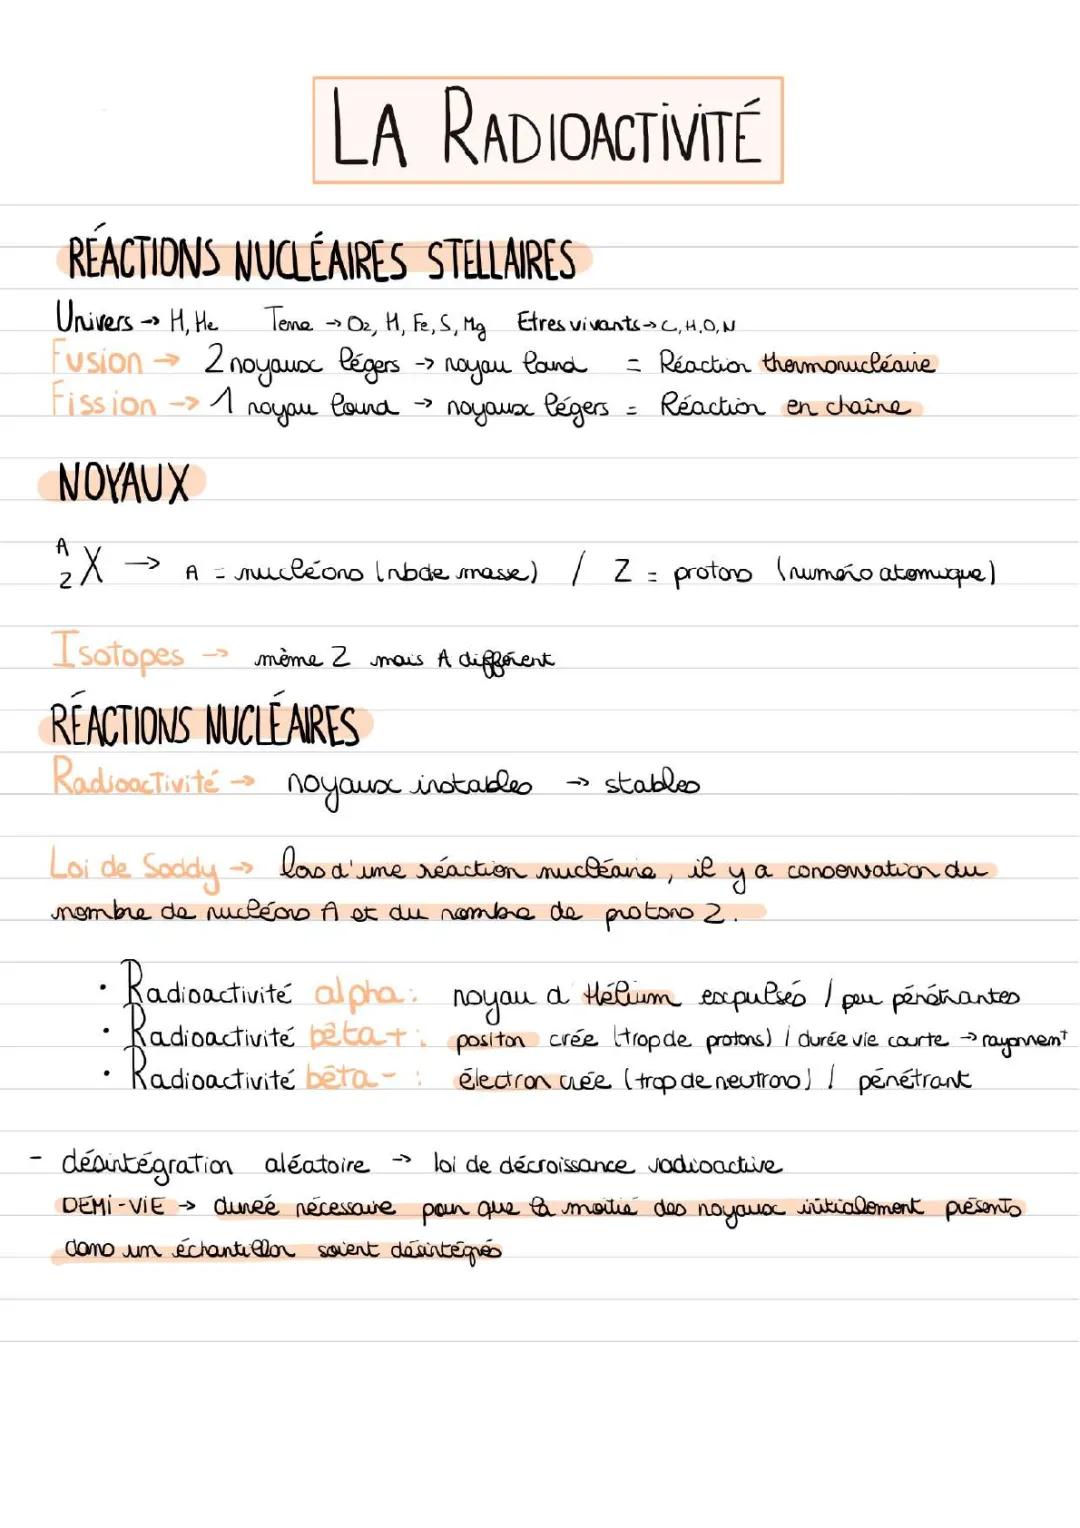 LA RADIOACTIVITÉ
RÉACTIONS NUCLÉAIRES STELLAIRES
Univers → H, He Terre → O2, H, Fe, S, Mg Etres vivants → C, H, O, N
Fusion → 2 noyaux légers → noyau lourd = Réaction thermonucléaire
Fission → 1 noyau lourd → noyaux légers = Réaction en chaîne
NOYAUX
A
Z X → A = nucléons (nb de masse) / Z = protons (numéro atomique)
Isotopes → même Z mais A différent
RÉACTIONS NUCLÉAIRES
Radioactivité → noyaux instables → stables
Loi de Soddy → lors d'une réaction nucléaire, il y a conservation du
nombre de nucléons A et du nombre de protons Z.
• Radioactivité alpha : noyau d'Hélium expulsés / peu pénétrantes
• Radioactivité bêta + : positon crée (trop de protons) / durée vie courte → rayonnemt
• Radioactivité bêta - : électron crée (trop de neutrons) / pénétrant
- désintégration aléatoire → loi de décroissance radioactive
DEMI-VIE → durée nécessaire pour que la moitié des noyaux initialement présents
dans un échantillon soient désintégrés